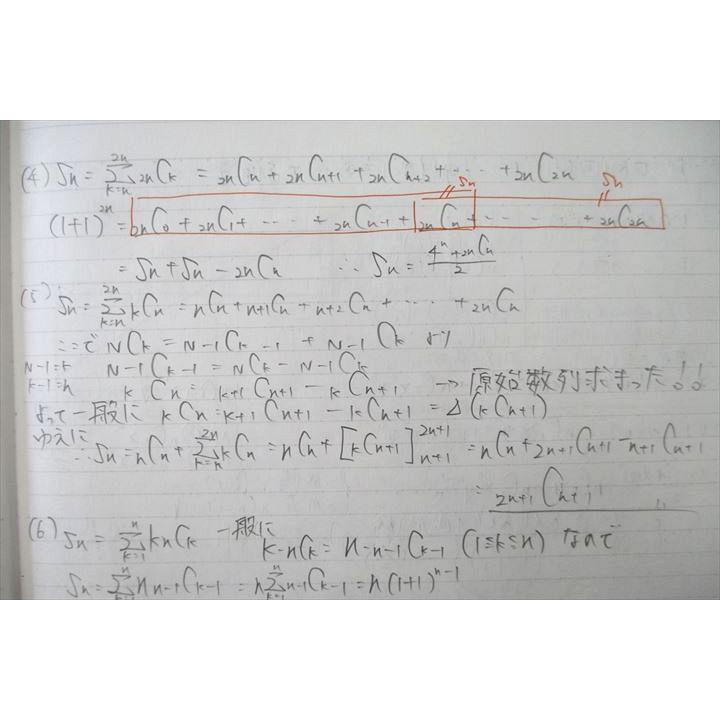 (4) Sn = Σ_{k=n}^{2n} 2nCk = 2nCn + 2nCn+1 + 2nCn+2 + ‥‥ + 2nC2n
Sn Sn
(1+1)^{2n} = 2nC0 + 2nC1 + ‥‥ + 2nCn-1 + 2nCn + ‥‥ + 2nC2n
= Sn + Sn - 2nCn ∴ Sn = (4^n + 2nCn)/2
(5) Sn = Σ_{k=n}^{2n} kCn = nCn + n+1Cn + n+2Cn + ‥‥ + 2nCn
ここで NCk = N-1Ck-1 + N-1Ck より
N-1=k N-1Ck-1 = NCk - N-1Ck
k-1=n kCn = k+1Cn+1 - kCn+1 → 原始数列求まった!!
よって一般に kCn = k+1Cn+1 - kCn+1 = Δ(kCn+1)
ゆえに
∴ Sn = nCn + Σ_{k=n}^{2n} kCn = nCn + [kCn+1]_{n+1}^{2n+1} = nCn + 2n+1Cn+1 - n+1Cn+1
= 2n+1Cn+1 〃
(6) Sn = Σ_{k=1}^{n} knCk 一般に k・nCk = n・n-1Ck-1 (1≦k≦n) なので
Sn = Σ_{k=1}^{n} n n-1Ck-1 = n Σ_{k=1}^{n} n-1Ck-1 = n(1+1)^{n-1}